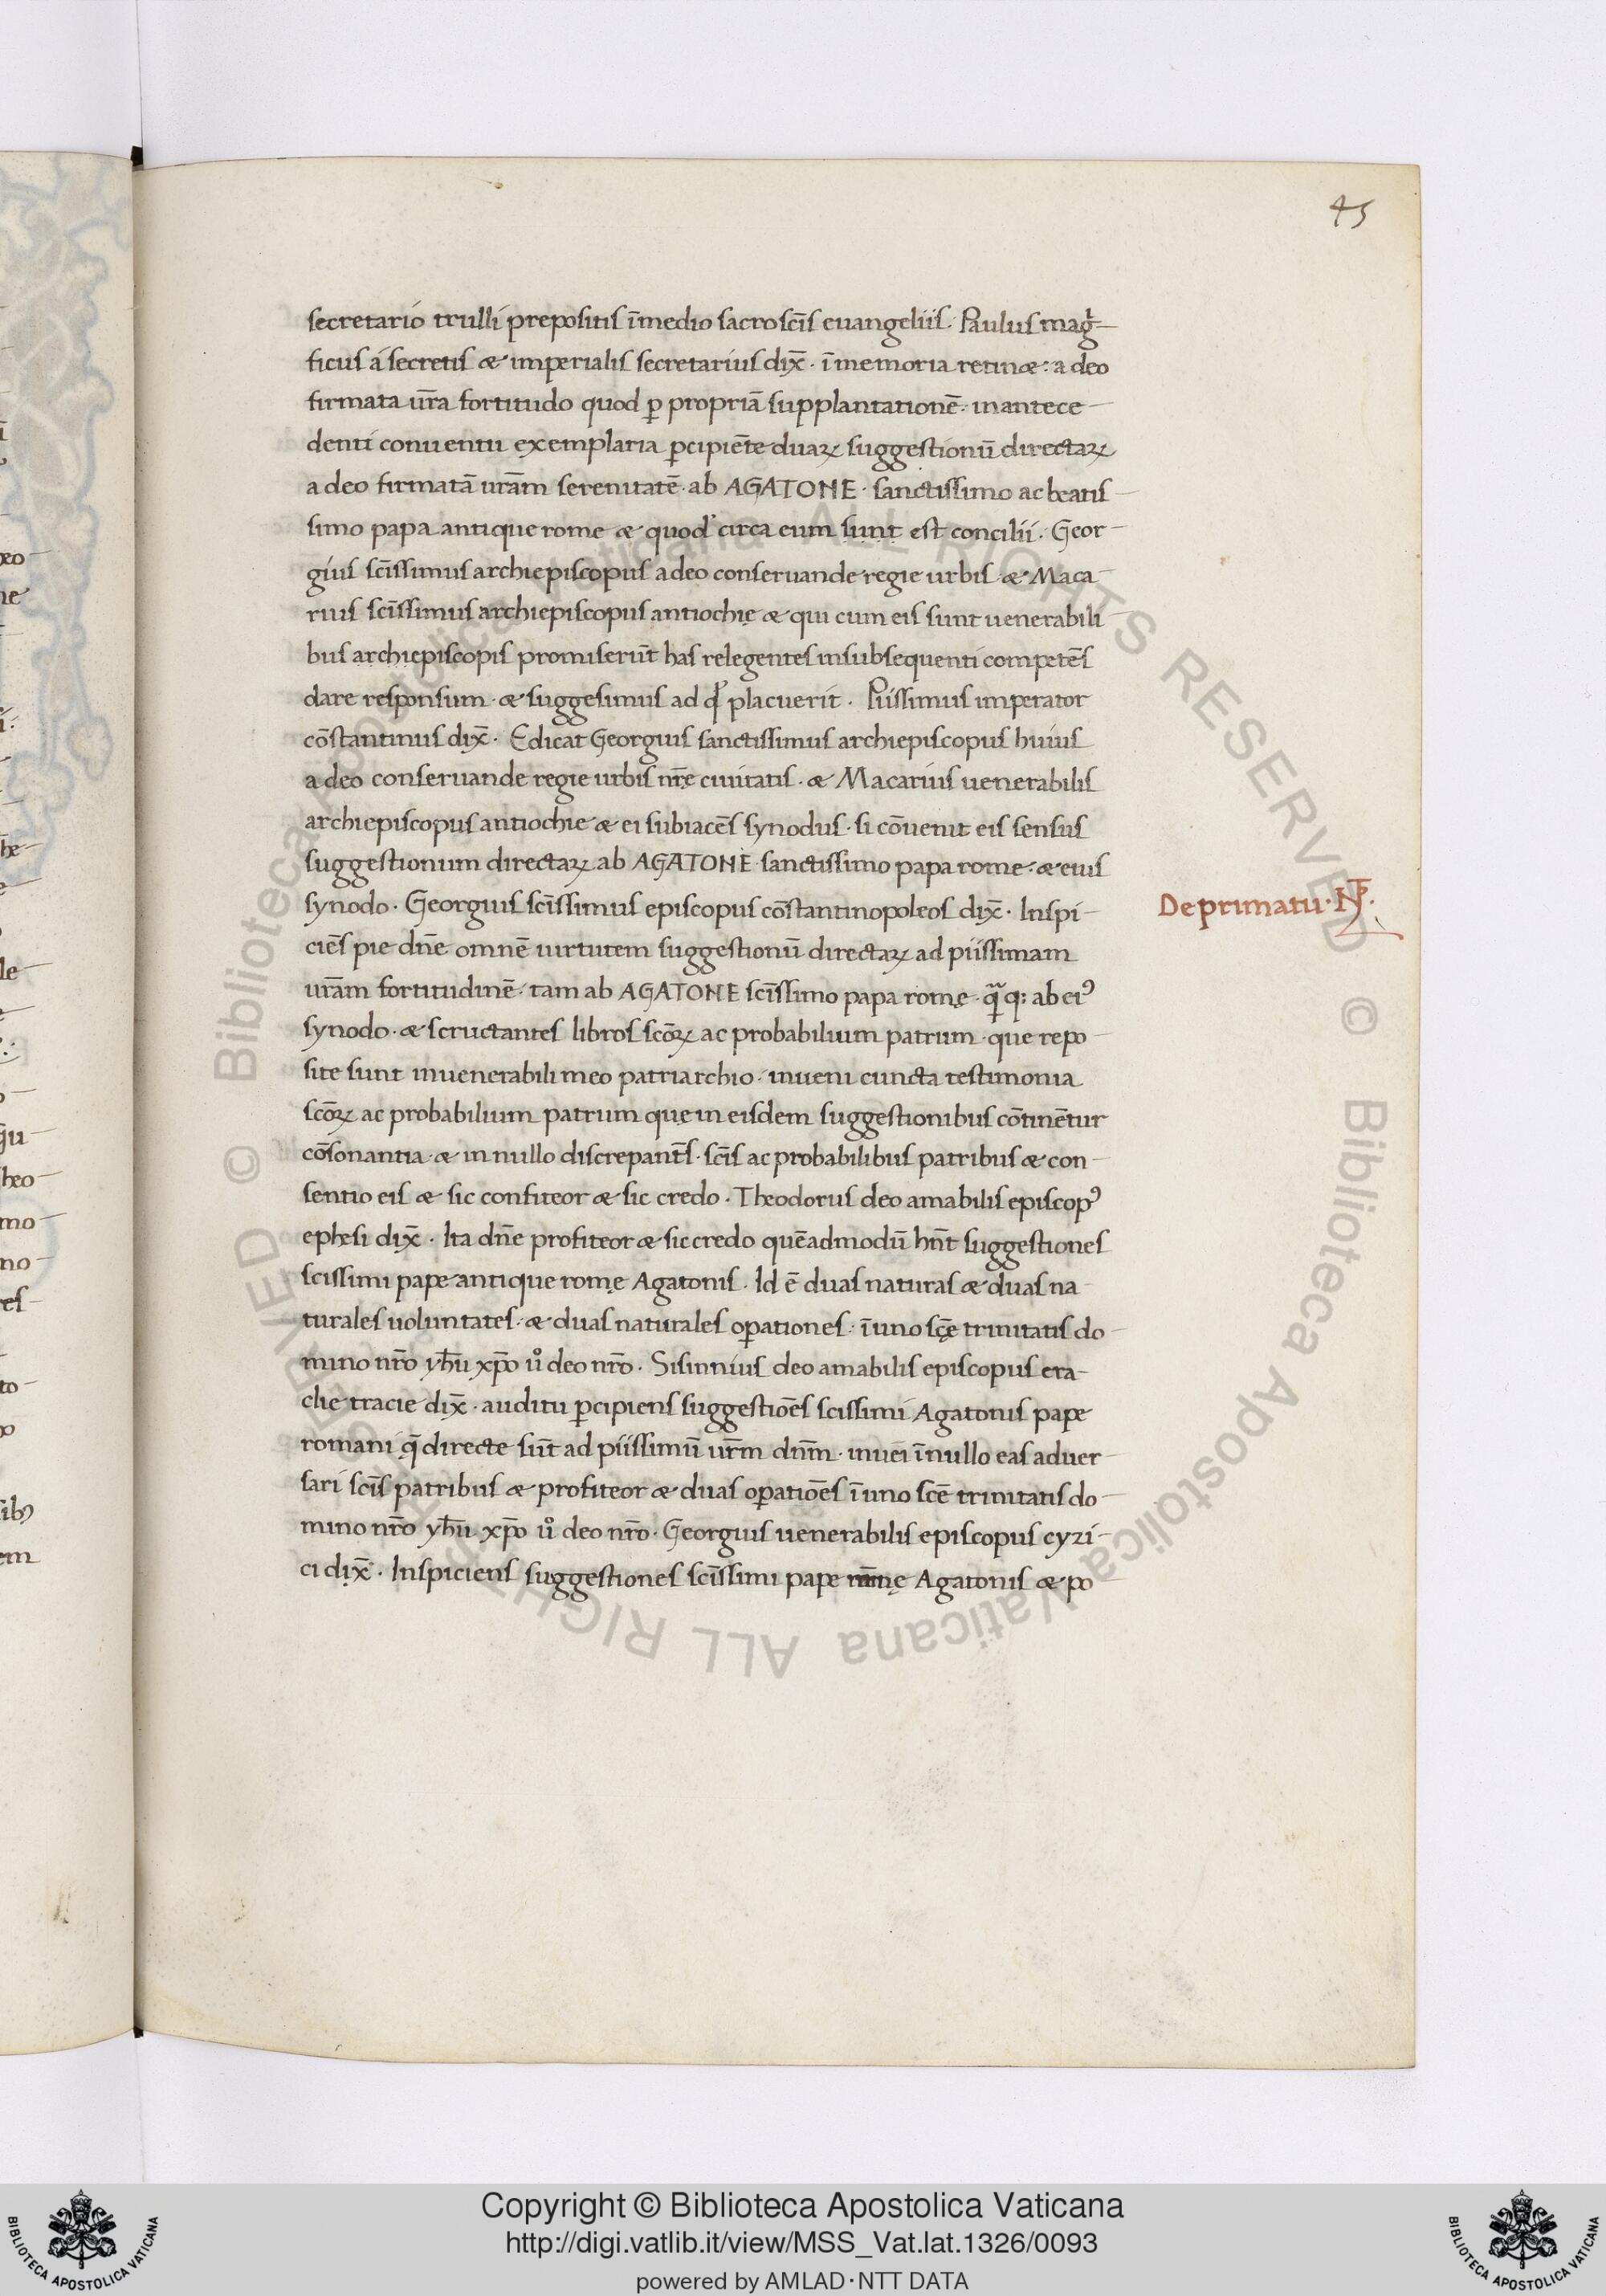 45
secretario trulli prepositis ī medio sacro scīs euangeliis. Paulus mag̅ı
ficus a secretis & imperialis secretarius dix̅. ī memoria retin&: a deo
firmata ur̅a fortitudo quod ꝑ propriā supplantationē. in antece
denti conuentu exemplaria ꝑcipiēte duaꝝ suggestionū directaꝝ
a deo firmatā urām serenitatē. ab AGATONE. sanctissimo ac beatis
simo papa antique rome & quod circa eum sunt est concilii. Geor
gius scīssimus archiepiscopus a deo conseruande regie urbis & Maca
rius scīssimus archiepiscopus antiochię & qui cum eis sunt uenerabili
bus archiepiscopis promiserūt has relegentes in subsequenti competēs
dare responsum. & suggesimus ad qd̓ placuerit. Piissimus imperator
cōstantinus dix̅. Edicat Georgius sanctissimus archiepiscopus huius
a deo conseruande regie urbis nr̅ę ciuitatis. & Macarius uenerabilis
archiepiscopus antiochie & ei subiacēs synodus. si cōuenit eis sensus
suggestionum directaꝝ ab AGATONE sanctissimo papa rome. & eius
synodo. Georgius scīssimus episcopus cōstantinopoleos dix̅. Inspi
De primatu. NP.
ciēs pie dn̅e omnē uirtutem suggestionū directaꝝ ad piissimam
urām fortitudinē. tam ab AGATONE scīssimo papa romę. q̄ᷓq: ab eiꝰ
synodo. & scructantes libros scōꝝ ac probabilium patrum. que repo
site sunt in uenerabili meo patriarchio. inueni cuncta testimonia
scōꝝ ac probabilium patrum quę in eisdem suggestionibus cōtinētur
cōsonantia. & in nullo discrepant̄s. scīs ac probabilibus patribus & con
sentio eis & sic confiteor & sic credo. Theodorus deo amabilis episcopꝰ
ephesi dix̅. Ita dn̅e profiteor & sic credo quēadmodū hn̅t suggestiones
scissimi pape antique romę Agatonis. Id ē duas naturas & duas na
turales uoluntates. & duas naturales oꝑationes. ī uno scę̄ trinitatis do
mino nr̅o yhū xp̅o uͦ deo nr̅o. Sisinnius deo amabilis episcopus era
clie tracie dix̅. auditu ꝑcipiens suggestiōes scissimi Agatonis pape
romani q̄ directe sūt ad piissimū ur̅m dn̅m. inuēi ī nullo eas aduer
sari scīs patribus & profiteor & duas oꝑatiōes ī uno scē trinitatis do
mino nr̅o yhū xp̅o uͦ deo nr̅o. Georgius uenerabilis episcopus cyzi
ci dix̅. Inspiciens suggestiones scīssimi pape Agatonis & po
© Biblioteca Apostolica Vaticana ALL RIGHTS RESERVED © Biblioteca Apostolica Vaticana ALL RIGHTS RESERVED
Copyright © Biblioteca Apostolica Vaticana
http://digi.vatlib.it/view/MSS_Vat.lat.1326/0093
powered by AMLAD·NTT DATA
BIBLIOTECA APOSTOLICA VATICANA
BIBLIOTECA APOSTOLICA VATICANA